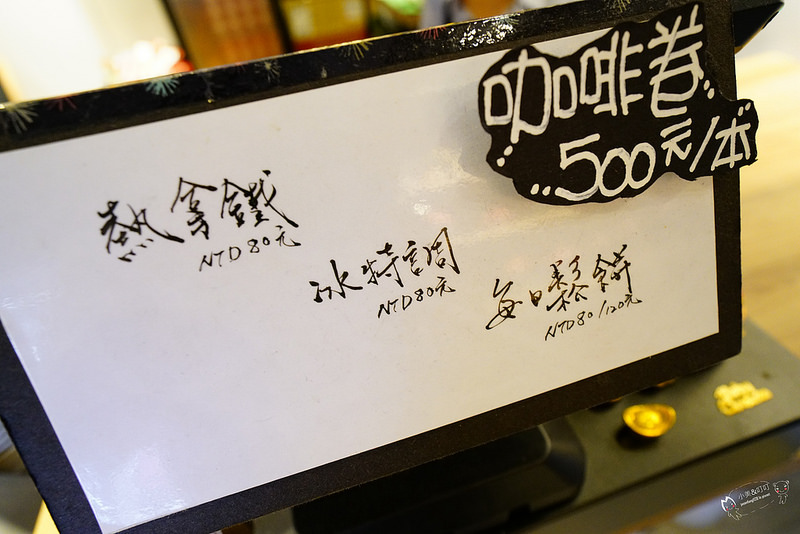 咖啡卷
500元/本
熱拿鐵
NTD 80元
冰特調
NTD 80元
每日鬆餅
NTD 80/120元
小米&叮叮